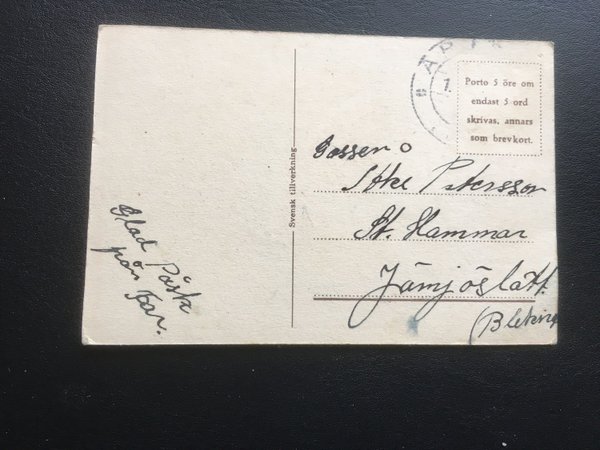 Glad Påsk
från Far.
Svensk tillverkning
Porto 5 öre om
endast 5 ord
skrivas, annars
som brevkort.
Gossen
Åke Petersson
St. Hammar
Jämjöslätt
(Blekinge